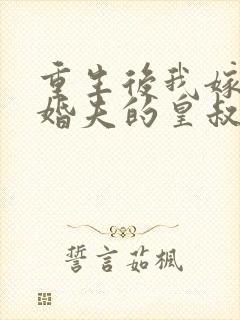 重生後我嫁
婚夫的皇叔
誓言茹楓